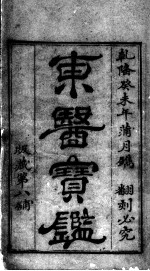 乾隆癸未年蒲月鐫
翻刻必究
東醫寶鑑
版藏第八甫